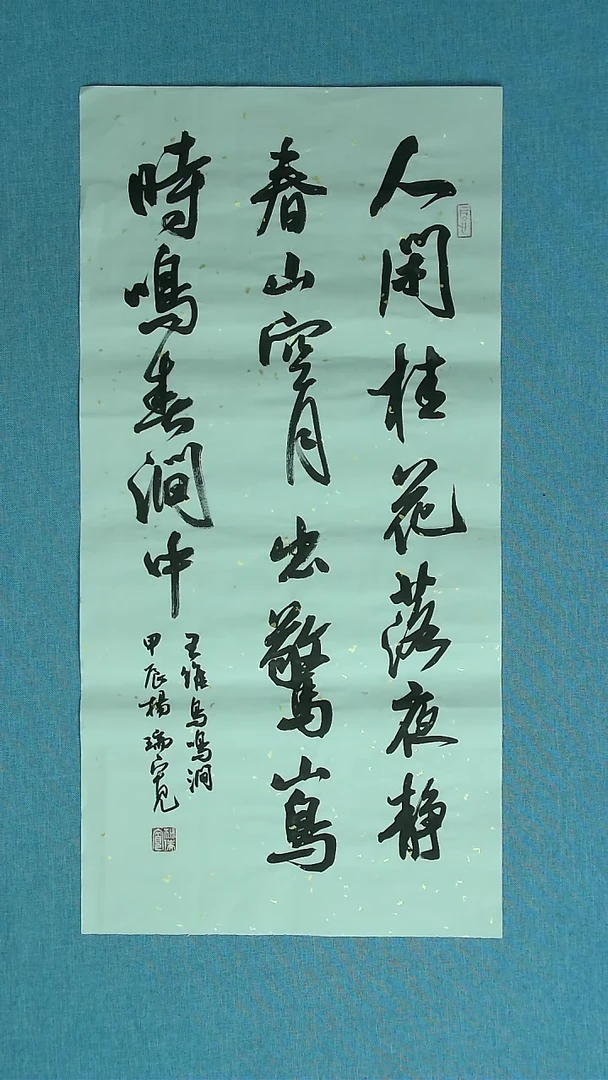 人閑桂花落夜静
春山空月出驚山鳥
時鳴春澗中
王維鳥鳴澗
甲辰楊瑞寬